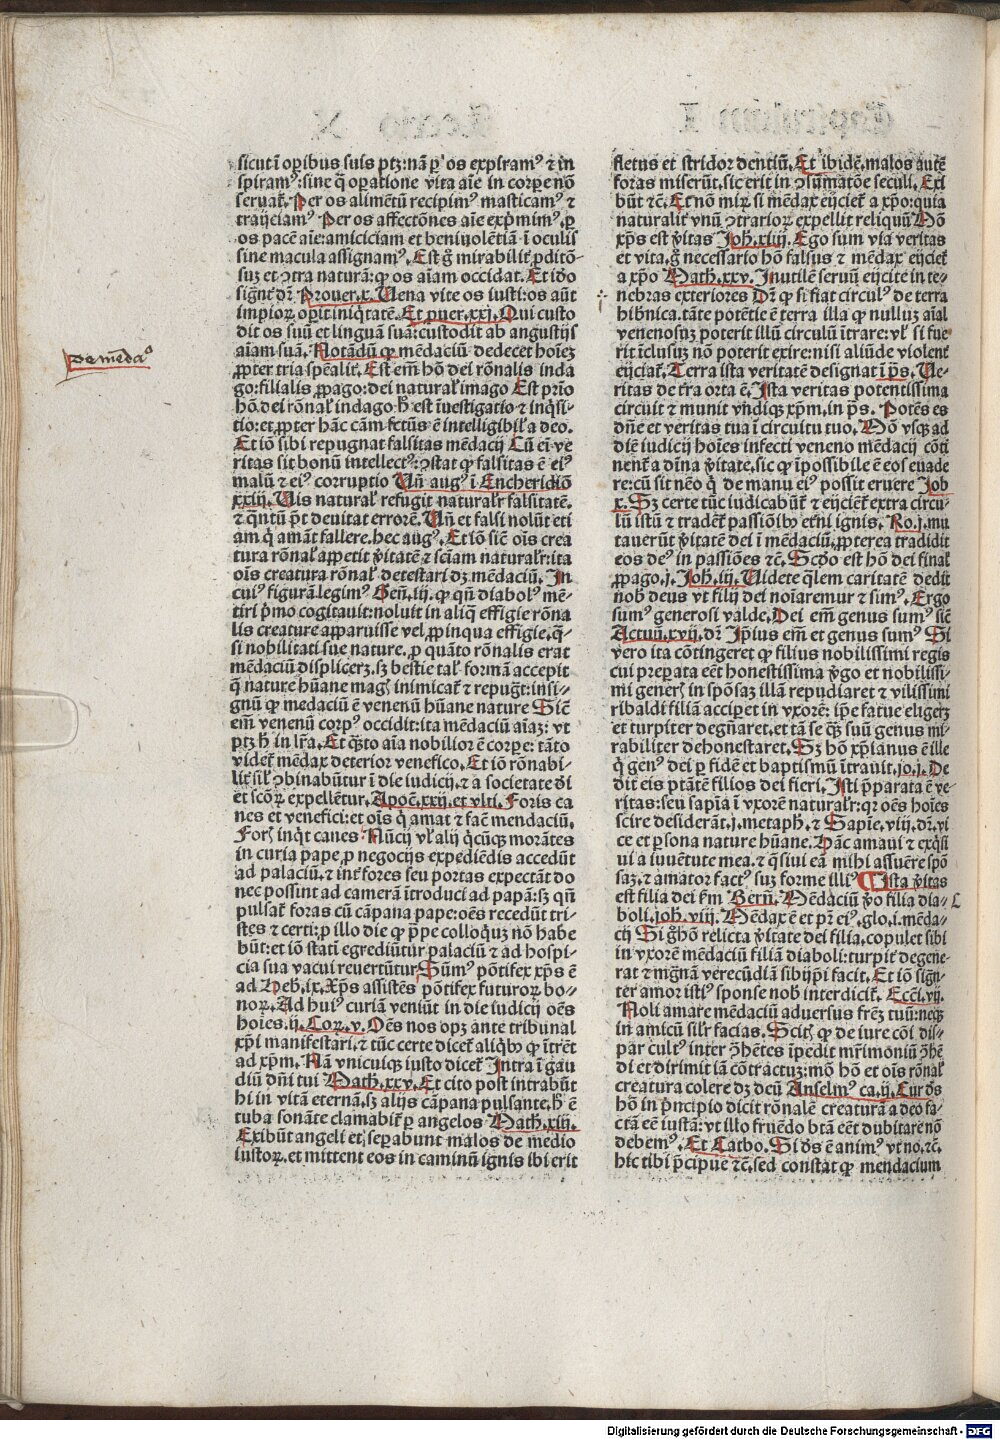 sicut ī oꝑibus suis ptꝫ:nā ꝑ os expiramꝰ ⁊ in
spiramꝰ:sine q̄ oꝑatione vita aīe in corꝑe nō
seruat᷑. Per os alimētū recipimꝰ masticamꝰ ⁊
traijciamꝰ Per os affectōnes aīe exp̄mimꝰ, ꝑ
os pacē aīe:amiciciam et beniuolētiā ī oculis
sine macula assignamꝰ. Est g̊ mirabilit᷑ ꝓditō-
suꝫ et ɔtra naturā:ꝙ os aīam occidat. Et iō
signt᷑ dr̄ Prouer.x. Uena vite os iusti:os aūt
impioꝝ oꝑit iniq̇tatē. Et puer.xxj. Qui custo
dit os suū et linguā suā:custodit ab angustijs
aīam suā. Notādū ꝙ mēdaciū dedecet hoīeꝫ
ꝓpter tria spēalit᷑. Est em̄ hō dei rōnalis inda
go:filialis ꝓpago:dei natural᷑ imago Est prīo
hō dei rōnal᷑ indago.ħ est īuestigatio ⁊ inq̇si-
tio:et ꝓpter hāc cām fctūs ē intelligibil᷑ a deo.
Et iō sibi repugnat falsitas mēdacij Cū ei ve
ritas sit bonū intellectꝰ:ɔstat ꝙ falsitas ē eiꝰ
malū ⁊ eiꝰ corruptio Uñ augꝰ ī Encheridiō
xxiij. Uis natural᷑ refugit natural᷑r falsitatē.
⁊ q̄ntū pōt deuitat errorē. Uñ et falsi nolūt eti
am q̇ amāt fallere.hec augꝰ. Et iō siē oīs crea
tura rōnal᷑ appetit v̄itatē ⁊ sciam natural᷑r:ita
oīs creatura rōnal᷑ detestari dꝫ mēdaciū. In
cuiꝰ figurā legimꝰ Gen̄.iij.ꝙ qn̄ diabolꝰ mē-
tiri p̄mo cogitauit:noluit in aliq̄ effigie rōna
lis creature apparuisse vel ꝓpinqua effigie.q̄-
si nobilitati sue nature, ꝓ quāto rōnalis erat
mēdaciū displiceꝛꝫ.sꝫ bestie tal᷑ formā accepit
q̄ nature hūane magꝭ inimicat᷑ ⁊ repugt̄:insi-
gnū ꝙ medaciū ē venenū hūane nature Sic̄
em̄ venenū corpꝰ occidit:ita mēdaciū aīaꝫ: vt
ptꝫ ħ in lr̄a. Et q̄ꝫto aīa nobilior ē corꝑe: tāto
videt᷑ mēdax deterior venefico. Et iō rōnabi-
lit᷑ sil᷑ ɔbinabūtur ī die iudicij. ⁊ a societate di
et scōꝝ expellētur. Apoc̄.xxij.et vlti. Foris ca
nes et venefici:et oīs q̇ amat ⁊ fac̄ mendaciū.
Forꝭ inq̇t canes Nūcij vl᷑ alij q̇cūqꝫ morātes
in curia pape ꝓ negocijs expediēdis accedūt
ad palaciū.⁊ int᷑ fores seu portas expectāt do
nec possint ad camerā ītroduci ad papā:sꝫ qn̄
pulsat᷑ foras cū cāpana pape:oēs recedūt tri-
stes ⁊ certi:ꝙ illo die ꝙ p̄pe colloqiuꝫ nō habe
būt:et iō stati egrediūtur palaciū ⁊ ad hospi-
cia sua vacui reuertūtur. Sūmꝰ pōtifex xp̄s ē
ad Heb.ix. Xp̄s assistēs pōtifex futuroꝝ bo-
noꝝ. Ad huiꝰ curiā veniūt in die iudicij oēs
hoīes.ij. Coꝝ.v. Oēs nos opꝫ ante tribunal
xp̄i manifestari.⁊ tūc certe dicet᷑ aliqḃ ꝙ ītrēt
ad xp̄m. Nā vnicuiqꝫ iusto dicet᷑ Intra ī gau
diū dn̄i tui Math.xxv. Et cito post intrabūt
hi in vitā eternā.sꝫ alijs cāpana pulsante.ħ ē
tuba sonāte clamabit᷑ ꝑ angelos Math.xiij.
Exibūt angeli et seꝑabunt malos de medio
iustoꝝ.et mittent eos in caminū ignis ibi erit
fletus et stridor dentiū. Et ibidē.malos autē
foras miserūt.sic erit in ɔsūmatōe seculi. Exi
būt ⁊c. Et nō miꝝ si mēdax eijciet᷑ a xp̄o:quia
naturalit᷑ vnū ɔtrarioꝝ expellit reliquū Hō
xp̄s est v̄itas Joh.xiiij. Ego sum via veritas
et vita.g̊ necessario hō falsus ⁊ mēdax eijciet᷑
a xp̄o Math.xxv. Inutilē seruū eijcite in te-
nebras exteriores Dr̄ ꝙ si fiat circulꝰ de terra
hibnica.tāte potētie ē terra illa ꝙ nulluꝫ aīal
venenosuꝫ poterit illū circulū ītrare: vl᷑ si fue
rit īclusuꝫ nō poterit exire:nisi aliūde violent᷑
eijciat᷑. Terra ista veritatē designat ī p̄s. Ue-
ritas de tra orta ē. Ista veritas potentissima
circuit ⁊ munit vndiqꝫ xp̄m.in p̄s. Potēs es
dn̄e et veritas tua ī circuitu tuo. Hō vsqꝫ ad
diē iudicij hoīes infecti veneno mēdacij cōti
nent᷑ a dīna v̄itate.sic ꝙ īpossibile ē eos euade
re:cū sit nēo q̇ de manu eiꝰ possit eruere Job
x. Sꝫ certe tūc iudicabūt᷑ ⁊ eijciet᷑ extra circu-
lū istū ⁊ tradēt᷑ passiōiḃ et̄ni ignis. Ro.j.mu
tauerūt v̄itatē dei ī mēdaciū.ꝓpterea tradidit
eos deꝰ in passiōes ⁊c. Scd̄o est hō dei filial᷑
ꝓpago.j. Joh.iij. Uidete q̄lem caritatē dedit
nob̄ deus vt filij dei noīaremur ⁊ simꝰ. Ergo
sumꝰ generosi valde. Dei em̄ genus sumꝰ sic̄
Actuū.xvij.dr̄ Ip̄ius em̄ et genus sumꝰ Si
vero ita cōtingeret ꝙ filius nobilissimi regis
cui preꝑata eēt honestissima v̄go et nobilissi-
mi generꝭ in spōsaꝫ illā repudiaret ⁊ vilissimi
ribaldi filiā acciꝑet in vxorē: ip̄e fatue eligeꝛꝫ
et turpiter degn̄aret.et tā se q̄ꝫ suū genus mi
rabiliter dehonestaret. Sꝫ hō xp̄ianus ē ille
q̇ genꝰ dei ꝑ fidē et baptismū ītrauit.jo.j. De
dit eis ptātē filios dei fieri. Isti p̄parata ē ve
ritas:seu sapīa ī vxorē natural᷑r:qr oēs hoīes
scire desiderāt.j.metaph̄. ⁊ Sapīe.viij.dr̄.vi
ce et ꝑsona nature hūane. Hāc amaui ⁊ exq̇si
ui a iuuētute mea.⁊ q̄siui eā mihi assūere spō
saꝫ.⁊ amator factꝰ suꝫ forme illiꝰ ¶ Ista v̄itas
est filia dei fm̄ Bern̄. Mēdaciū v̄o filia dia-
boli.joh.viij. Mēdax ē et pr̄ eiꝰ.glo.i.mēda-
cij Si g̊ hō relicta v̄itate dei filia.copulet sibi
in vxorē mēdaciū filiā diaboli:turpit᷑ degene-
rat ⁊ mḡnā verecūdiā sibijp̄i facit. Et iō sign̄-
ter amor istiꝰ sponse nob̄ interdicit᷑. Ecc̄i.vij.
Noli amare mēdaciū aduersus fr̄eꝫ tuū:neqꝫ
in amicū sil᷑r facias. Scitꝭ ꝙ de iure cōi dis-
par cultꝰ inter ɔh̄ētes īpedit mr̄imoniū ɔh̄ē
di et dirimit iā cōtractuꝫ:mō hō et oīs rōnal᷑
creatura colere dꝫ deū Anselmꝰ ca.ij. Cur ds̄
hō in p̄ncipio dicit rōnalē creaturā a deo fa-
ctā eē iustā: vt illo fruēdo btā eēt dubitare nō
debemꝰ. Et Catho. Si ds̄ ē animꝰ vt no.⁊c.
hic tibi p̄cipue ⁊c.sed constat ꝙ mendacium
de mēdaⁱᵒ
Digitalisierung gefördert durch die Deutsche Forschungsgemeinschaft - DFG